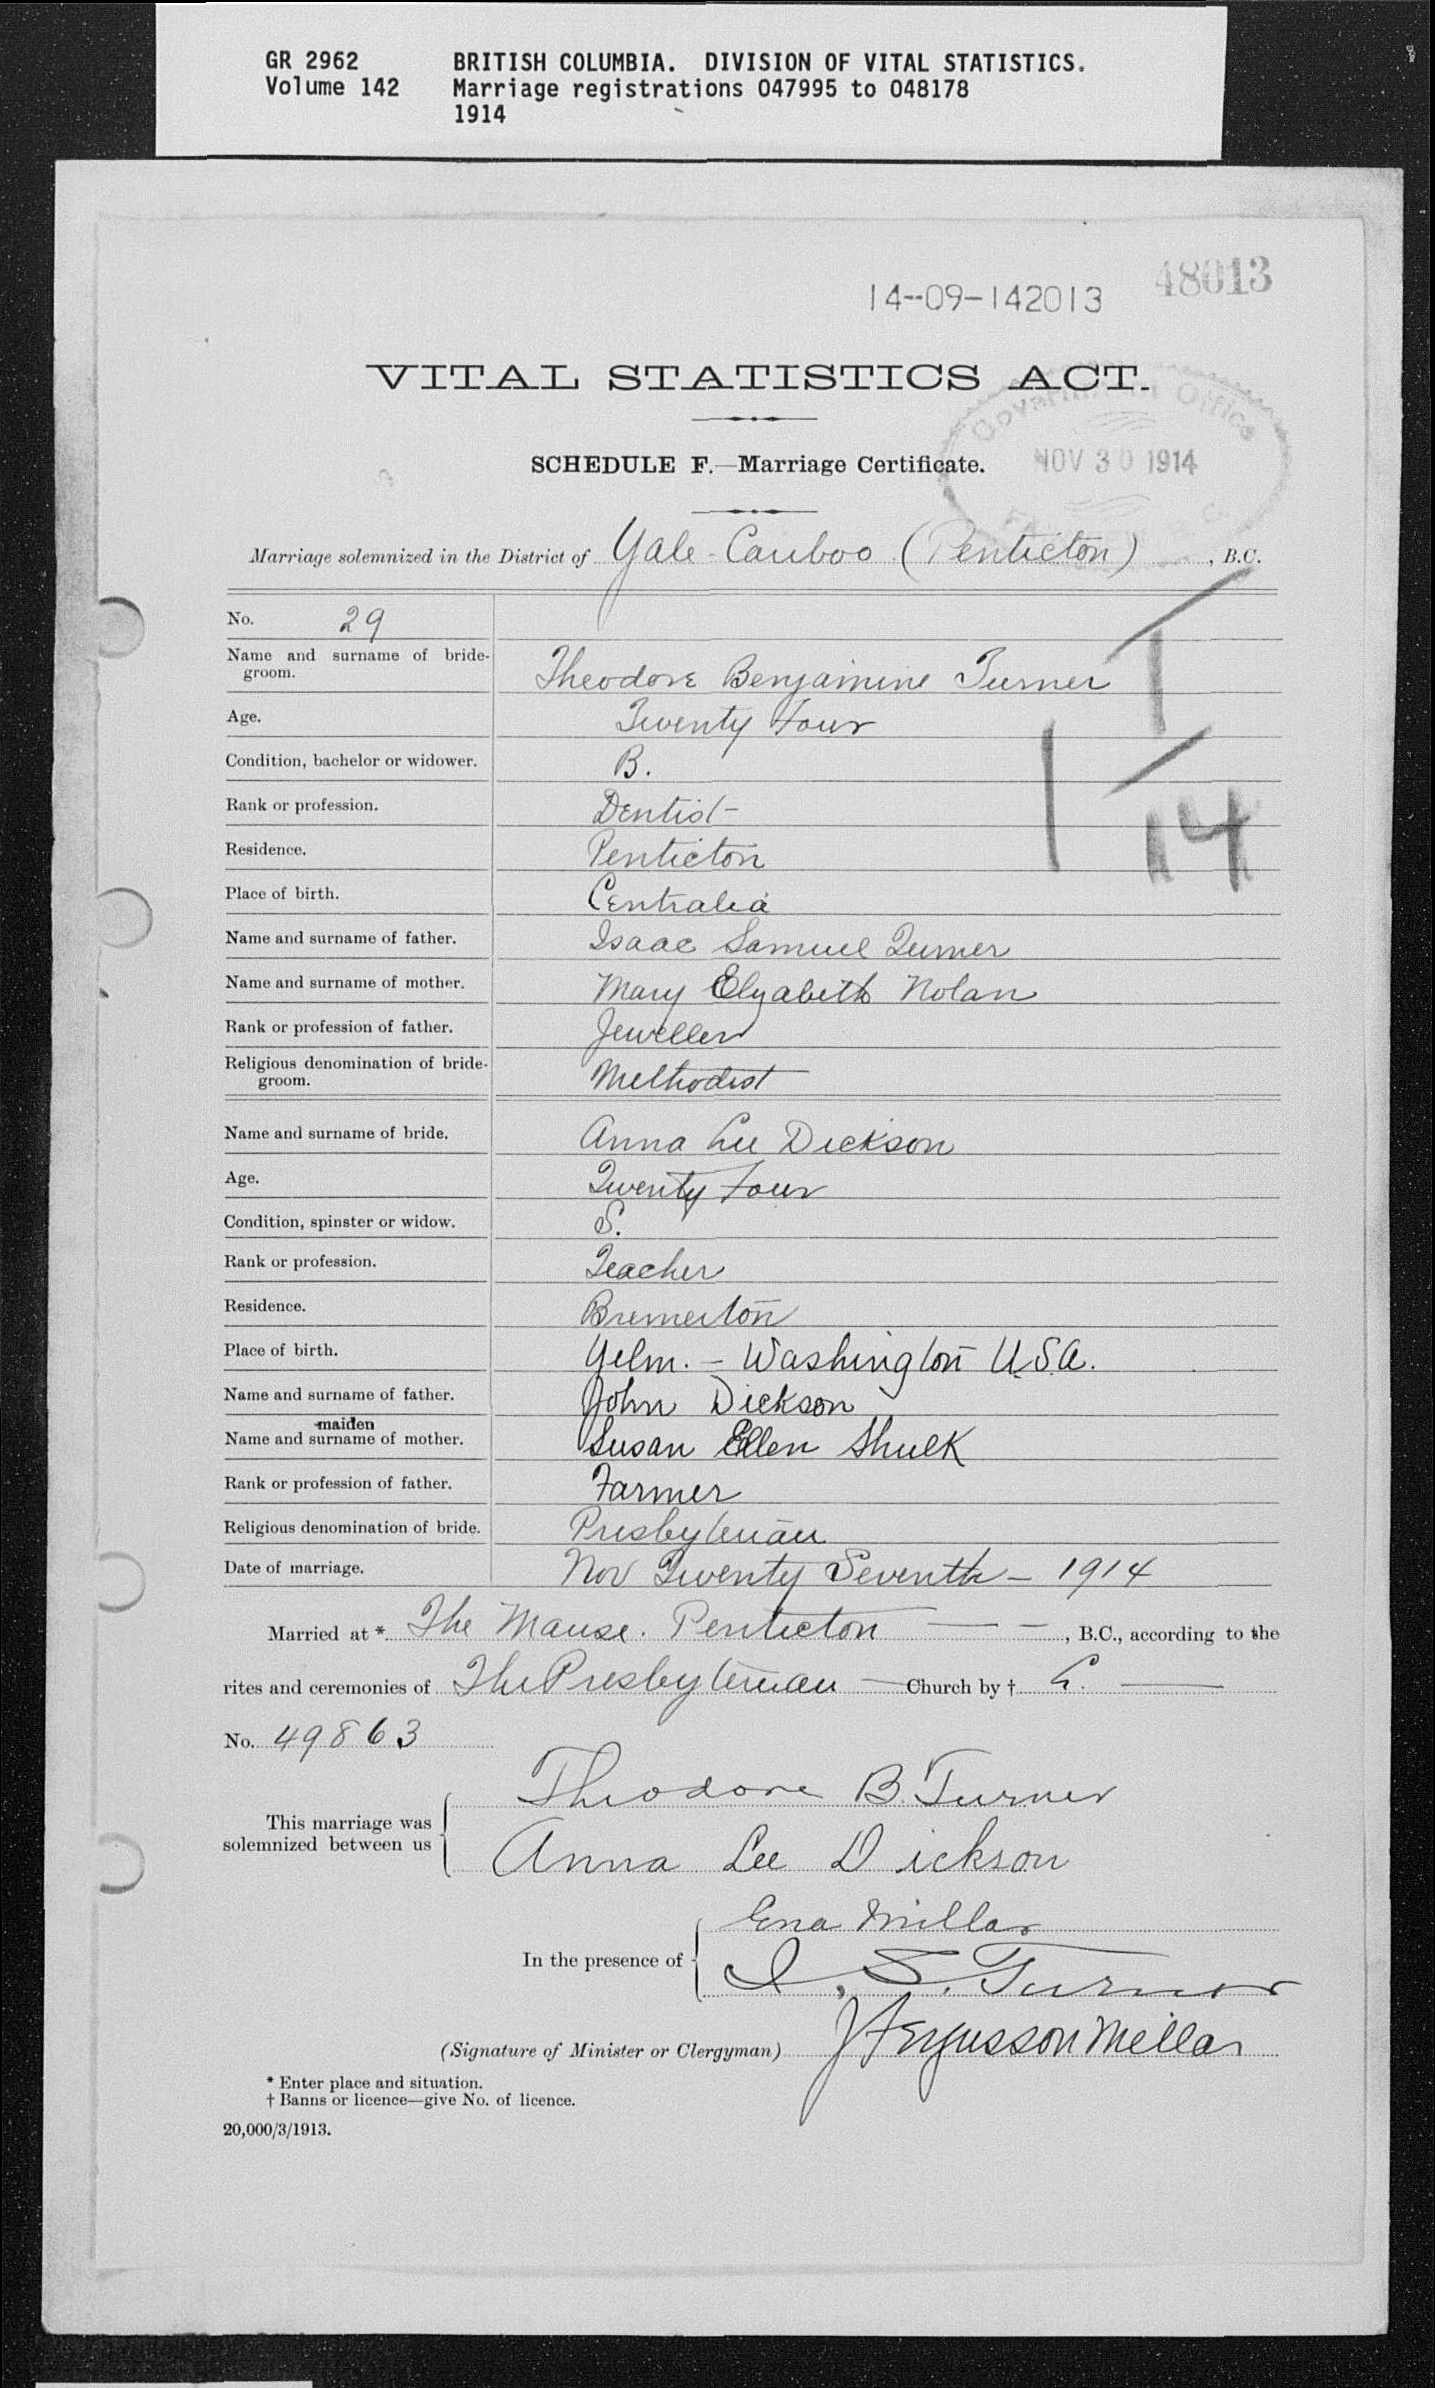 GR 2962 BRITISH COLUMBIA. DIVISION OF VITAL STATISTICS.
Volume 142 Marriage registrations 047995 to 048178
1914
48013
14--09-142013
VITAL STATISTICS ACT.
Government Office
NOV 30 1914
SCHEDULE F.—Marriage Certificate.
Marriage solemnized in the District of Yale-Cariboo (Penticton), B.C.
No. 29
Name and surname of bride-groom. Theodore Benjamine Turner
Age. Twenty Four
Condition, bachelor or widower. B.
Rank or profession. Dentist
Residence. Penticton
Place of birth. Centralia
Name and surname of father. Isaac Samuel Turner
Name and surname of mother. Mary Elyabeth Nolan
Rank or profession of father. Jeweller
Religious denomination of bride-groom. Methodist
1/1/14
Name and surname of bride. Anna Lee Dickson
Age. Twenty Four
Condition, spinster or widow. S.
Rank or profession. Teacher
Residence. Bremerton
Place of birth. Yelm. - Washington U.S.A.
Name and surname of father. John Dickson
maiden
Name and surname of mother. Susan Ellen Shulk
Rank or profession of father. Farmer
Religious denomination of bride. Presbyterian
Date of marriage. Nov Twenty Seventh - 1914
Married at * The Manse. Penticton — –, B.C., according to the
rites and ceremonies of The Presbyterian — Church by † L. —
No. 49863
This marriage was solemnized between us
Theodore B. Turner
Anna Lee Dickson
In the presence of
Ena Millar
I. S. Turner
(Signature of Minister or Clergyman) J Fergusson Millar
* Enter place and situation.
† Banns or licence—give No. of licence.
20,000/3/1913.